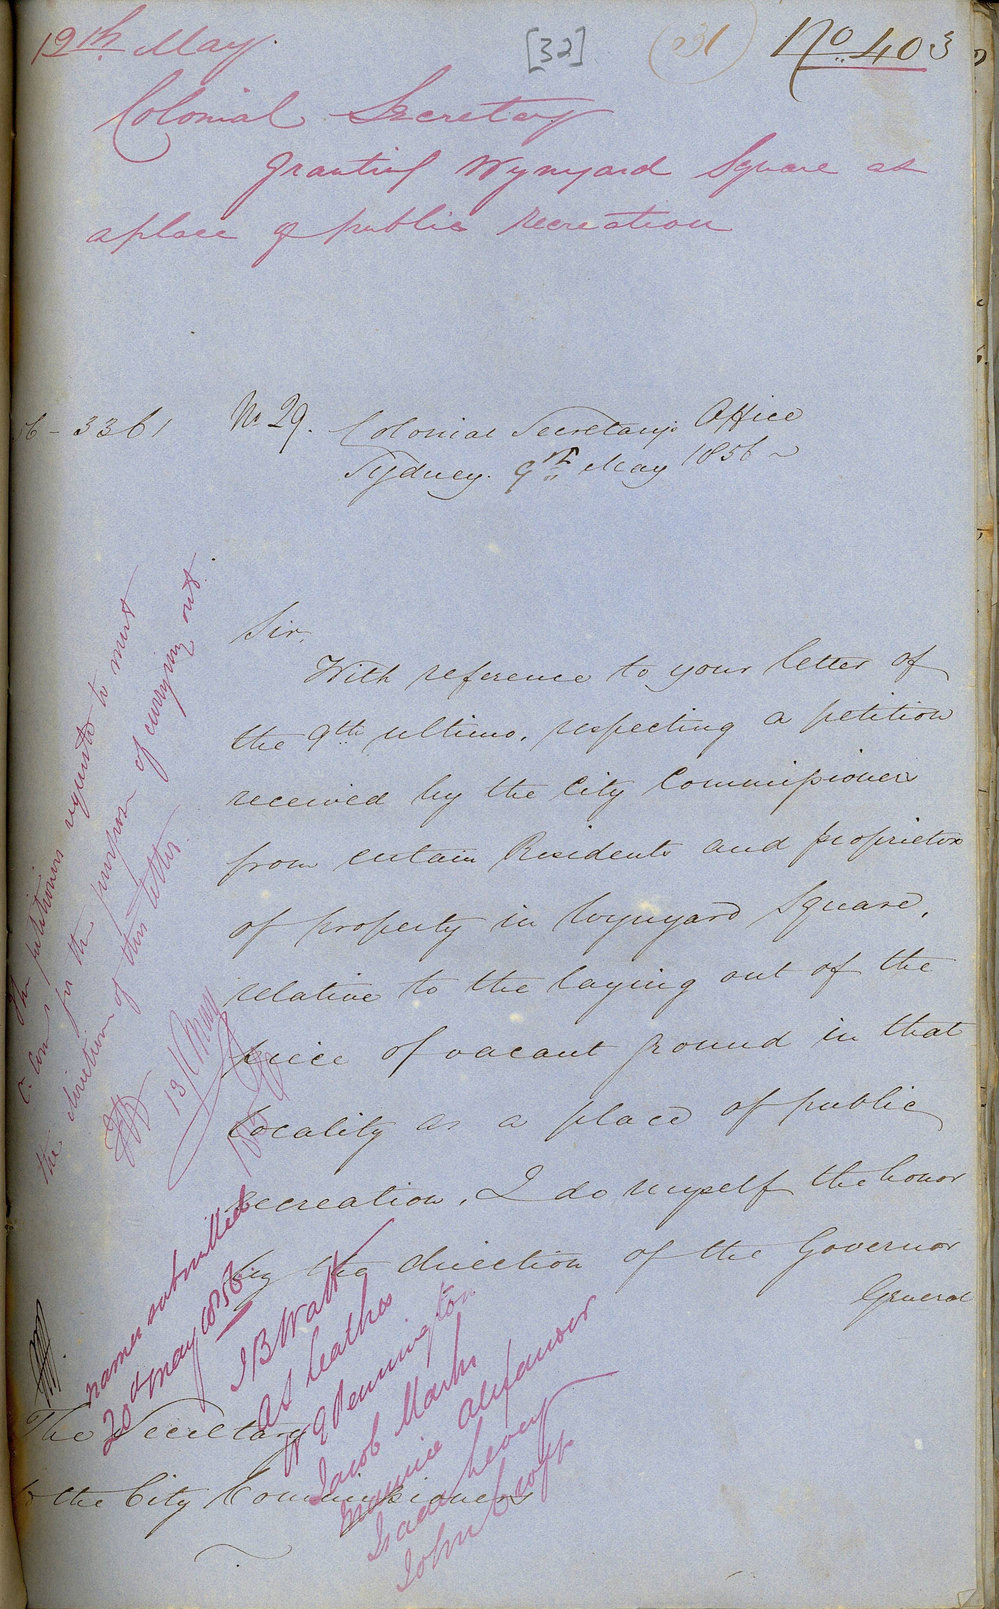 12th May.
[32]
(231)
No. 403
Colonial Secretary
granting Wynyard Square as
a place of public recreation
56-3361
No 29.
Colonial Secretary's Office
Sydney. 9th May 1856
Sir,
With reference to your letter of
the 9th ultimo, respecting a petition
received by the City Commissioners
from certain Residents and proprietors
of property in Wynyard Square,
relative to the laying out of the
piece of vacant ground in that
locality as a place of public
recreation, I do myself the honor
by the direction of the Governor
General
The Secretary
to the City Commissioners
The petitioners requested to meet
C. Com for the purpose of carrying out
the direction of this letter.
13 May
names submitted
20th May 1856
J B Watt
W G Pennington
Jacob Marks
Maurice Alexander
Isaac Levey
John Croft